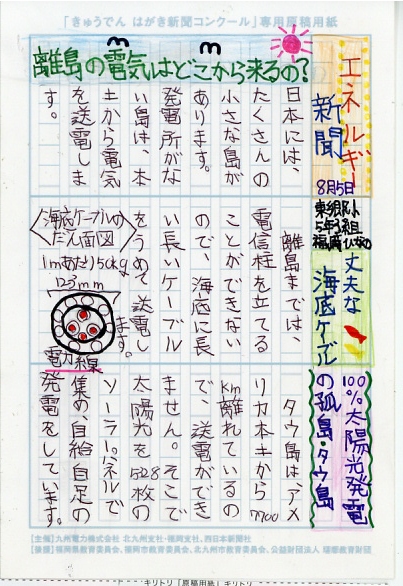 「きゅうでん はがき新聞コンクール」専用原稿用紙
エネルギー
新聞
8月5日
5年3組
離島の電気はどこから来るの?
日本には、
たくさんの
小さな島が
あります。
発電所がな
い島は、本
土から電気
を送電しま
す。
丈夫な
海底ケーブル
離島までは、
電信柱を立てる
ことができない
ので、海底に長
い長いケーブル
をうめて送電し
ます。
海底ケーブルの
だん面図
1mあたり50kg
123mm
電力線
100%太陽光発電
の孤島・タウ島
タウ島は、アメ
リカ本土から7700
km離れているの
で、送電ができ
ません。そこで
太陽光を5328枚の
ソーラーパネルで
集め、自給自足の
発電をしています。
【主催】九州電力株式会社 北九州支社・福岡支社、西日本新聞社
【後援】福岡県教育委員会、福岡市教育委員会、北九州市教育委員会、公益財団法人 理想教育財団
キリトリ 「原稿用紙」 キリトリ